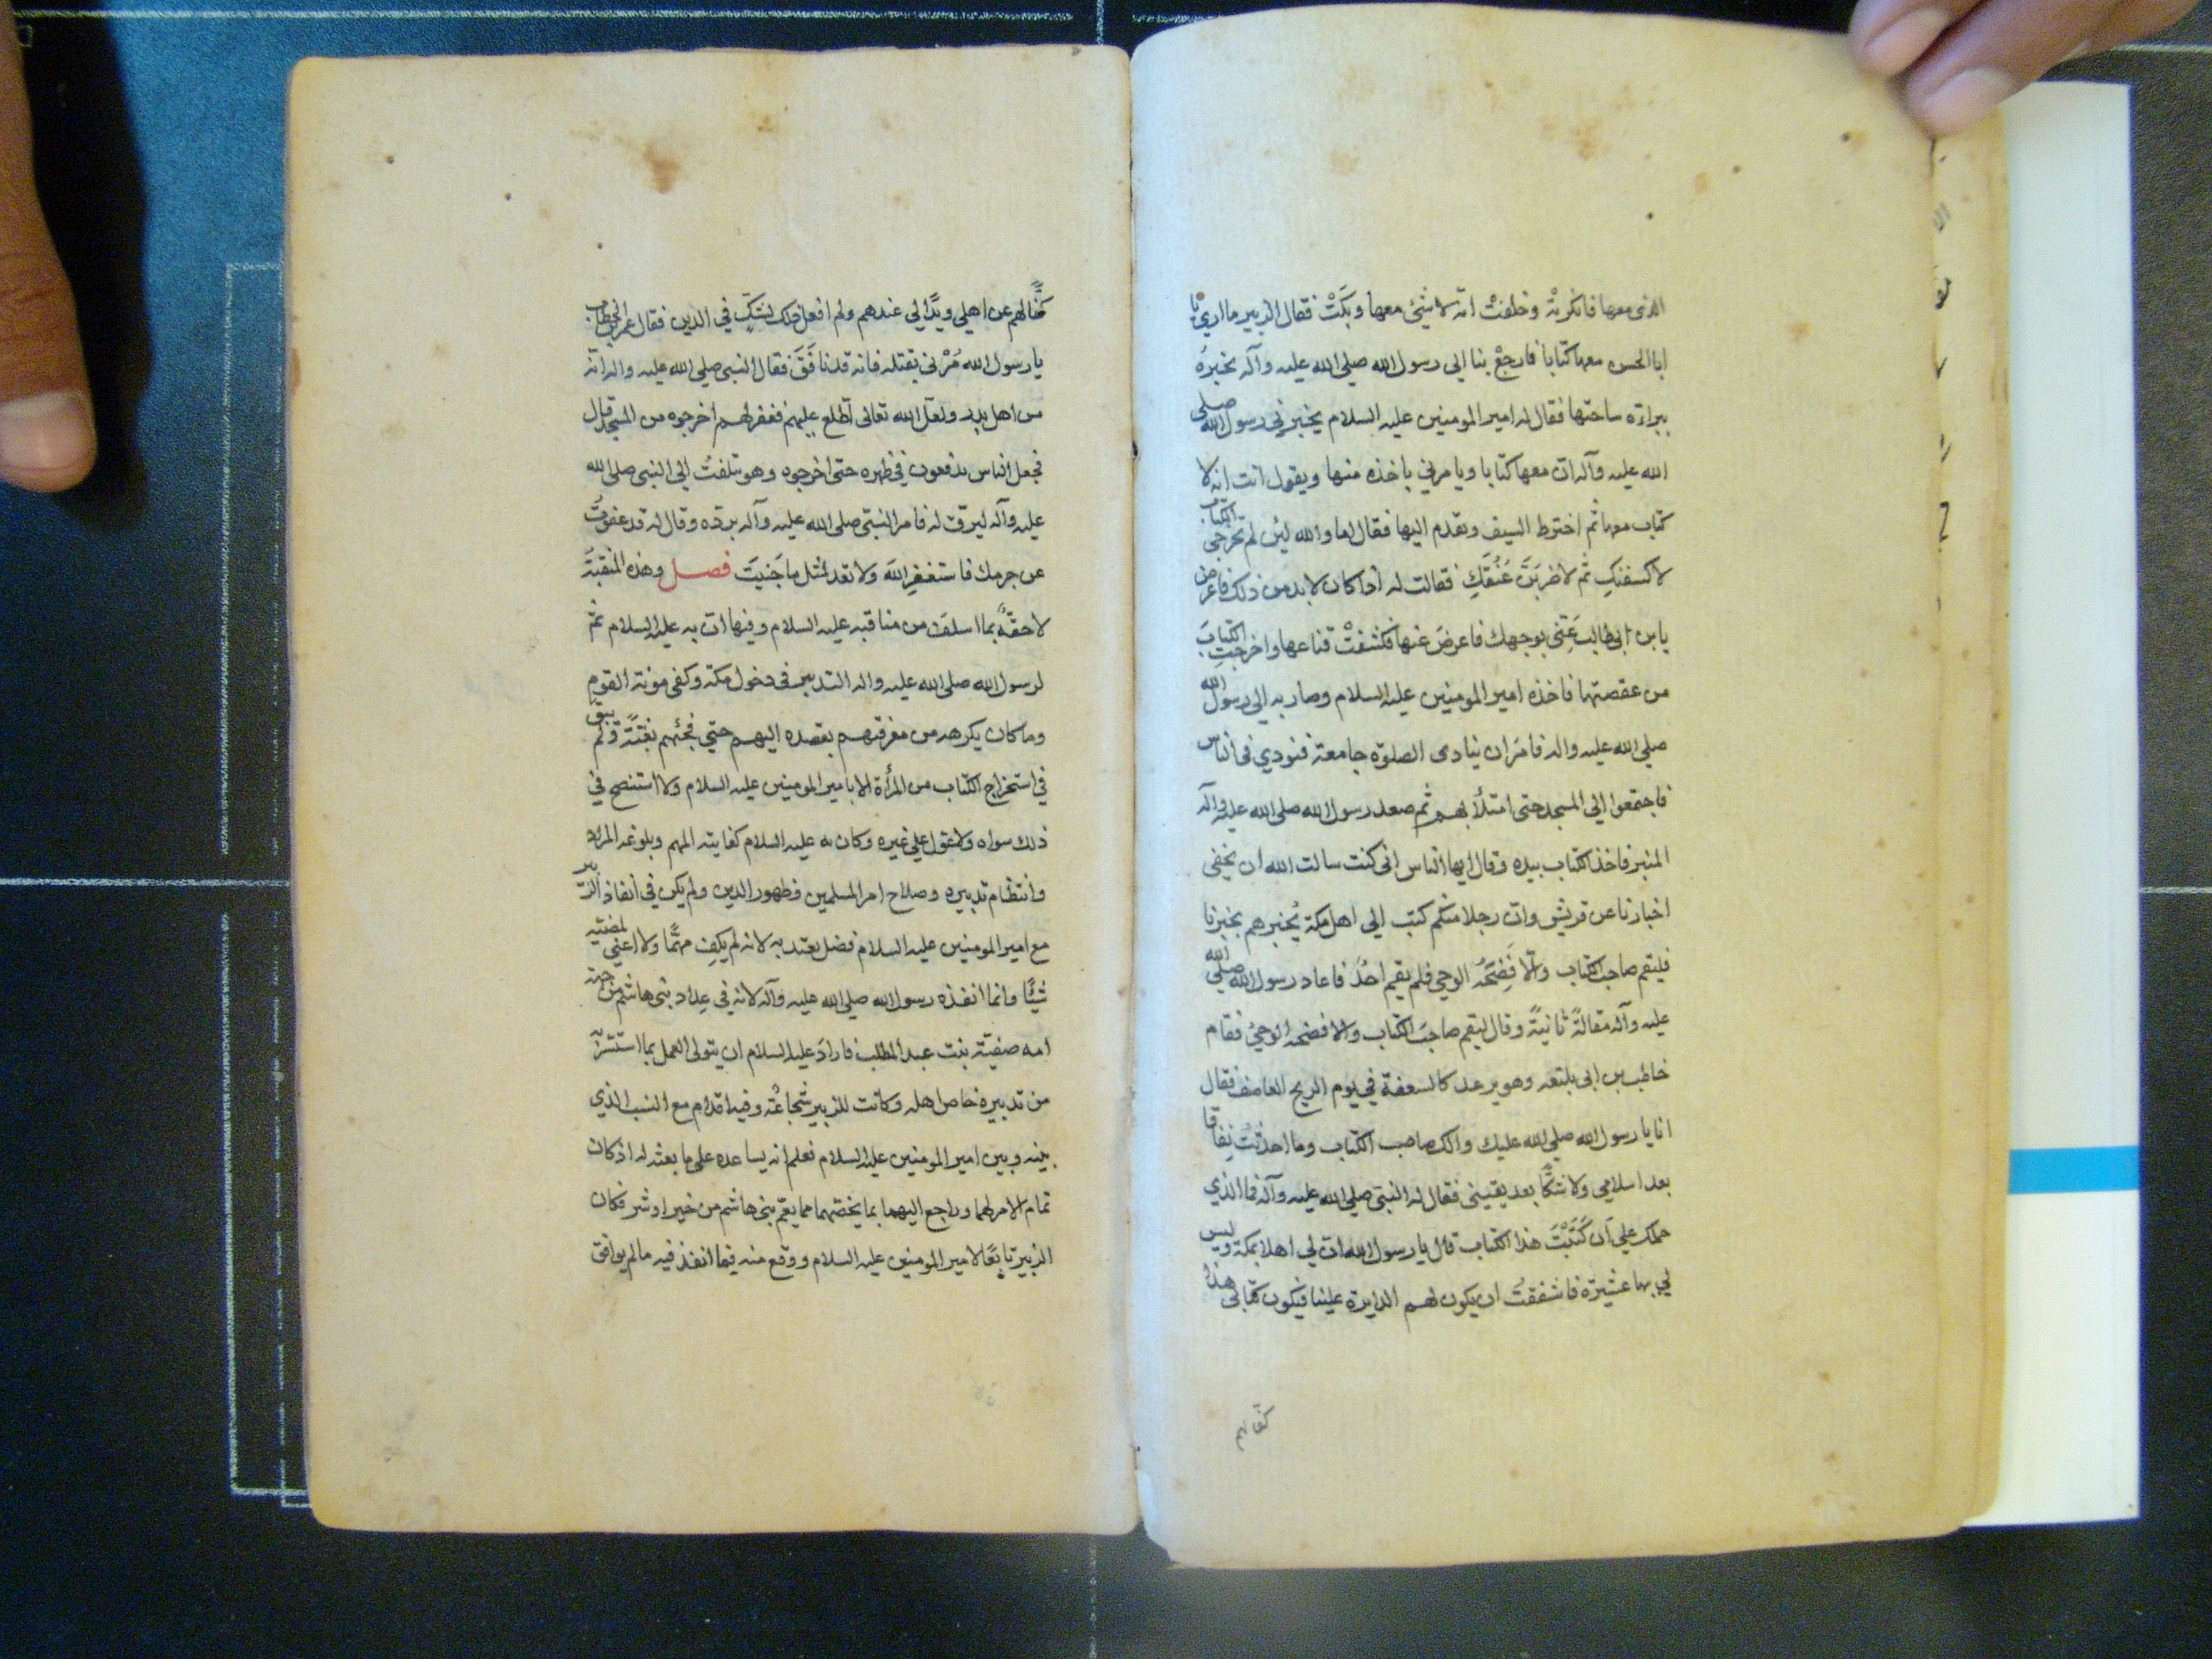 الذي معها فانكرتْه وحلفتْ انه لا شئ معها وبكَتْ فقال الزبير ما اري يا
ابا الحسن معها كتابا فارجعْ بنا الى رسول الله صلى الله عليه وآله نخبرُه
ببراءة ساحتها فقال له امير المومنين عليه السلام يخبرني رسول الله صلى
الله عليه وآله ان معها كتابا ويامرني باخذه منها ويقول انت انه لا
كتاب معها ثم اخترط السيف وتقدم اليها فقال لها والله لئن لم تخرجى الكتاب
لاكسفنكِ ثم لاضربَنَّ عُنُقَكِ فقالت له اذا كان لا بد من ذلك فاعرض
يا بن ابى طالب عَنّي بوجهك فاعرضَ عنها فكشفتْ قناعها واخرجتِ الكتابَ
من عقصتها فاخذه امير المومنين عليه السلام وصار به الى رسول الله
صلى الله عليه واله فامَر ان ينادى الصلوة جامعة فنودي فى الناس
فاجتمعوا الى المسجد حتى امتلأ بهم ثم صعد رسول الله صلى الله عليه وآله
المنبر فاخذ الكتاب بيده وقال ايها الناس انى كنت سالت الله ان يخفى
اخبارنا عن قريش وان رجلا منكم كتب الى اهل مكة يُخبرهم بخبرنا
فليقم صاحب الكتاب والّا فَضَحَه الوحي فلم يقم احدٌ فاعاد رسول الله صلى الله
عليه وآله مقالةً ثانيةً وقال ليقم صاحبَ الكتاب والا فضحه الوحيُ فقام
حاطب بن ابى بلتعه وهو يرعد كالسعفة في يوم الريح العاصف فقال
انا يا رسول الله صلى الله عليك والك صاحب الكتاب وما احدثتُ نِفاقا
بعد اسلامي ولا شكًّا بعد يقيني فقال له النبىّ صلى الله عليه وآله فما الذي
حملك على اَن كَتَبْتَ هذا الكتاب قال يا رسول الله ان لي اهلا بمكة وليس
لي بها عشيرة فاشفقتُ ان يكون لهم الدايرة علينا فيكون كتابى هذا
كفّا لهم
كفًّا لهم عن اهلي ويدًا لي عندهم ولم افعل ذلك لشكٍّ في الدين فقال عمر بن الخطاب
يا رسول الله مُرْنى بقتله فانه قد نافَقَ فقال النبى صلى الله عليه واله انه
من اهل بدر ولعل الله تعالى اطّلع عليهم فغفر لهم اخرجوه من المسجد قال
فجعل الناس يدفعون في ظهره حتى اخرجوه وهو يتلفتُ الى النبى صلى الله
عليه وآله ليرق له فامر النبىّ صلى الله عليه وآله بردّه وقال له قد عفوتُ
عن جرمك فاستغفِرِ اللهَ ولا تعد لمثل ما جَنيتَ فصل وهذه المنقبةَ
لاحقةٌ بما اسلفَ من مناقبه عليه السلام وفيها ان به عليه السلام تمّ
لرسول الله صلى الله عليه واله التدبير فى دخول مكة وكفى مونة القوم
وما كان يكرهه من معرفتهم بقصده اليهم حتي فجئهم بغتَةً ولم يثق
في استخراج الكتاب من المرأة الا بامير المومنين عليه السلام ولا استنصح في
ذلك سواه ولا عَوّل على غيره وكان به عليه السلام كفايته المهم وبلوغه المراد
وانتظام تدبيره وصلاح امر المسلمين وظهور الدين ولم يكن في انفاذ الزبير
مع امير المومنين عليه السلام فضل يعتد به لانه لم يكفِ مهمًّا ولا اغني بمضيّه
شيئًا وانما انفذه رسول الله صلى الله عليه وآله لانه في عِداد بنى هاشم من جهة
امه صفيّة بنت عبد المطلب فارادَ عليه السلام ان يتولى العمل بما استَسَرّ
من تدبيره خاص اهله وكانت للزبير شجاعةٌ وفيه اقدام مع النسب الذي
بينه وبين امير المومنين عليه السلام فعلم انه يساعده على ما بعثه له اذ كان
تمام الامر لهما وراجع اليهما بما يخصهما مما يعمّ بنى هاشم من خير او شر فكان
الزبير تابعًا لامير المومنين عليه السلام ووقع منه فيما انفذ فيه ما لم يوافق